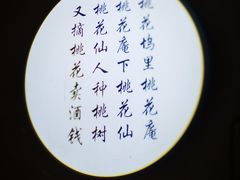 桃花坞里桃花庵
桃花庵下桃花仙
桃花仙人种桃树
又摘桃花卖酒钱